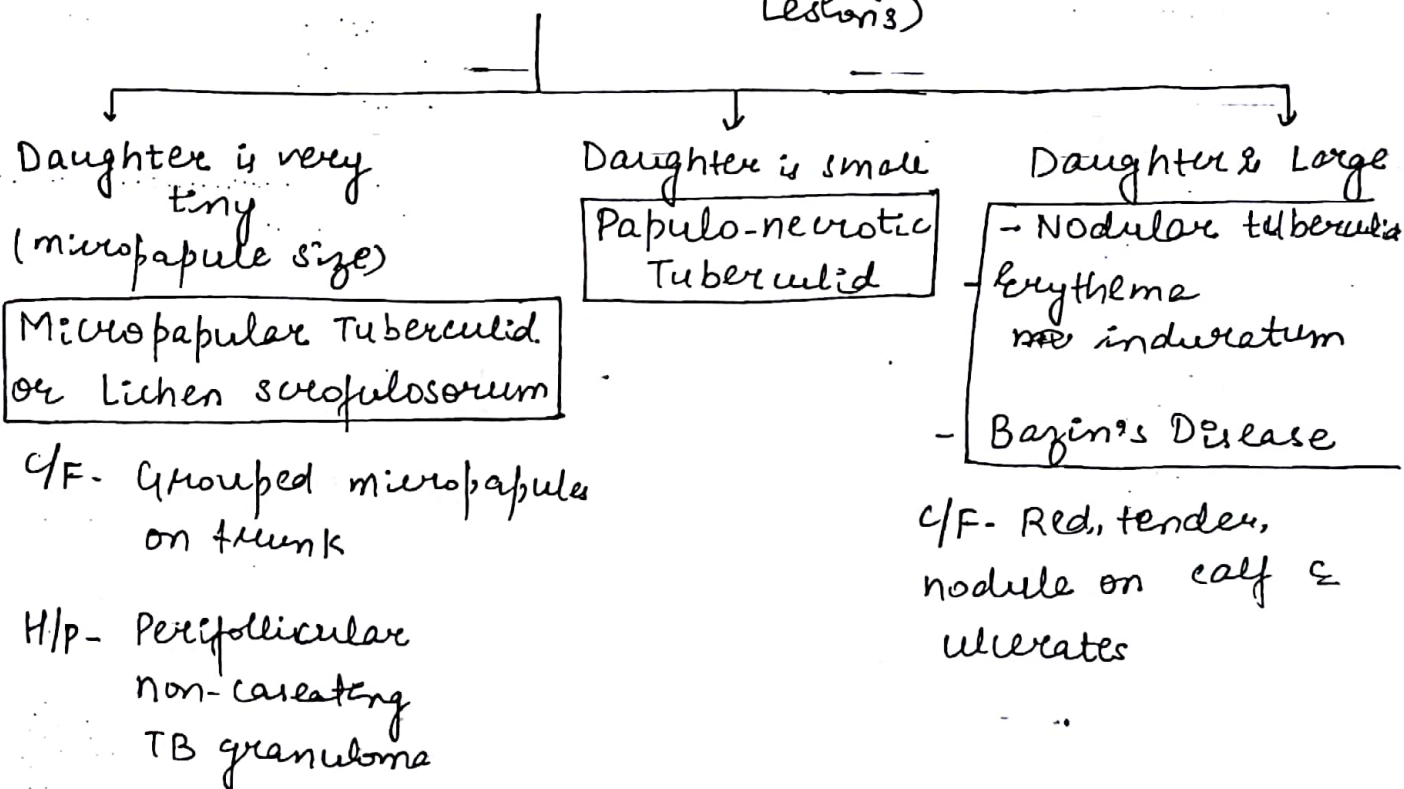 Lesions)
Daughter is very
tiny
(micropapule size)
Micropapular Tuberculid
or Lichen scrofulosorum
C/F- Grouped micropapules
on trunk
H/p- Perifollicular
non-caseating
TB granuloma
Daughter is small
Papulo-necrotic
Tuberculid
Daughter is Large
- Nodular tuberculid
- Erythema
induratum
- Bazin's Disease
C/F- Red, tender,
nodule on calf &
ulcerates